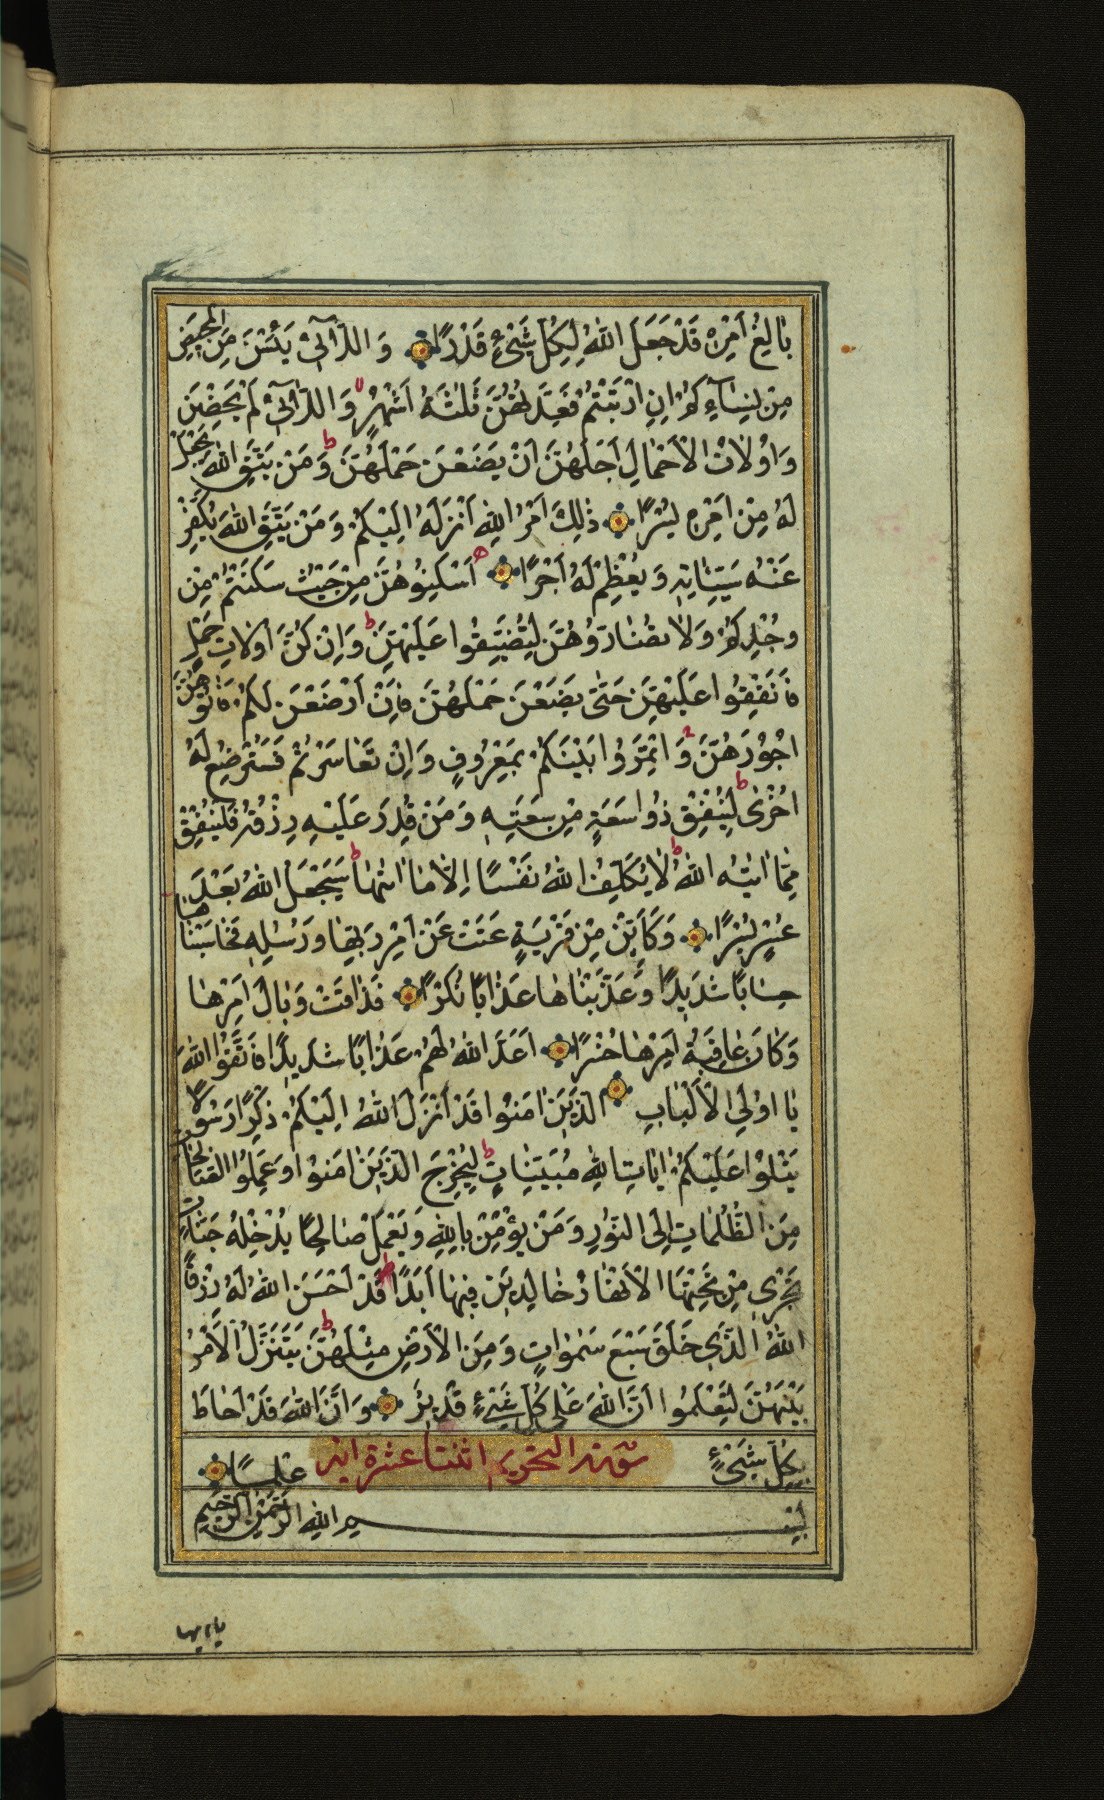 بَالِغُ اَمْرِهْ قَدْ جَعَلَ اللهُ لِكُلِّ شَیْءٍ قَدْرًا وَ الّٰٓلآئیْ یَئِسْنَ مِنَ الْمَحِیضِ
مِنْ نِسَآءِکُمْ اِنِ ارْتَبْتُمْ فَعِدَّتُهُنَّ ثَلٰثَةُ اَشْهُرٍ وَ الّٰلآئیْ لَمْ یَحِضْنَ
وَ اُوْلاٰتُ الْاَحْمٰالِ اَجَلُهُنَّ اَنْ یَضَعْنَ حَمْلَهُنَّ ط وَ مَنْ یَتَّقِ اللهَ یَجْعَلْ
لَهُ مِنْ اَمْرِهِ یُسْرًا ذٰلِكَ اَمْرُ اللهِ اَنْزَلَهُ اِلَیْکُمْ وَ مَنْ یَتَّقِ اللهَ یُکَفِّرْ
عَنْهُ سَیِّئٰاتِهِ وَ یُعْظِمْ لَهُ اَجْرًا اَسْکِنُوهُنَّ مِنْ حَیْثُ سَکَنْتُمْ مِنْ
وُجْدِکُمْ وَ لاٰ تُضٰارُّوهُنَّ لِتُضَیِّقُوا عَلَیْهِنَّ ط وَ اِنْ کُنَّ اُولاٰتِ حَمْلٍ
فَاَنْفِقُوا عَلَیْهِنَّ حَتّٰی یَضَعْنَ حَمْلَهُنَّ فَاِنْ اَرْضَعْنَ لَکُمْ فَاٰتُوهُنَّ
اُجُوُرَهُنَّ وَ اْتَمِرُوا بَیْنَکُمْ بِمَعْرُوفٍ وَ اِنْ تَعٰاسَرْتُمْ فَسَتُرْضِعُ لَهُ
اُخْرٰی ط لِیُنْفِقْ ذُو سَعَةٍ مِنْ سِعَتِهِ وَ مَنْ قُدِرَ عَلَیْهِ رِزْقُهُ فَلْیُنْفِقْ
مِمّٰا اٰتٰیهُ اللهُ ط لاٰ یُکَلِّفُ اللهُ نَفْسًا اِلاّٰ مٰا اٰتٰیهٰا ط سَیَجْعَلُ اللهُ بَعْدَ
عُسْرٍ یُسْرًا وَ کَاَیِّنْ مِنْ قَرْیَةٍ عَتَتْ عَنْ اَمْرِ رَبِّهٰا وَ رُسُلِهِ فَحٰاسَبْنٰاهٰا
حِسٰابًا شَدِیدًا وَ عَذَّبْنٰاهٰا عَذٰابًا نُکْرًا فَذٰاقَتْ وَبٰالَ اَمْرِهٰا
وَ کٰانَ عٰاقِبَةُ اَمْرِهٰا خُسْرًا اَعَدَّ اللهُ لَهُمْ عَذٰابًا شَدِیدًا فَاتَّقُوا اللهَ
یٰا اُولِی الْاَلْبٰابِ الَّذِینَ اٰمَنُوا قَدْ اَنْزَلَ اللهُ اِلَیْکُمْ ذِکْرًا رَسُولاً
یَتْلُوْا عَلَیْکُمْ اٰیٰاتِ اللهِ مُبَیِّنٰاتٍ ط لِیُخْرِجَ الَّذِینَ اٰمَنُوا وَ عَمِلُوا الصّٰالِحٰاتِ
مِنَ الظُّلُمٰاتِ اِلَی النُّورِ وَ مَنْ یُؤْمِنْ بِاللهِ وَ یَعْمَلْ صٰالِحًا یُدْخِلْهُ جَنّٰاتٍ
تَجْرِی مِنْ تَحْتِهَا الْاَنْهٰارُ خٰالِدِینَ فِیهٰا اَبَدًا ط قَدْ اَحْسَنَ اللهُ لَهُ رِزْقًا
اللهُ الَّذِی خَلَقَ سَبْعَ سَمٰوٰاتٍ وَ مِنَ الْاَرْضِ مِثْلَهُنَّ ط یَتَنَزَّلُ الْاَمْرُ
بَیْنَهُنَّ لِتَعْلَمُوا اَنَّ اللهَ عَلٰی کُلِّ شَیْءٍ قَدِیرٌ وَ اَنَّ اللهَ قَدْ اَحٰاطَ
بِکُلِّ شَیْءٍ سورة التحریم اثنتا عشرة ایة عِلْمًا
بِسْمِ اللهِ الرَّحْمٰنِ الرَّحِیمِ
یا ایها